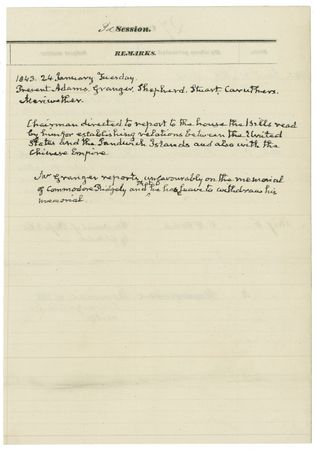 3d Session.
REMARKS.
1843. 24 January Tuesday.
Present Adams, Granger, Shepherd, Stuart, Caruthers,
Meriwether.
Chairman directed to report to the house the Bills read
by him for establishing relations between the United
States and the Sandwich Islands and also with the
Chinese Empire
Mr Granger reports unfavourably on the memorial
of Commodore Ridgely and that he has leave to withdraw his
memorial.